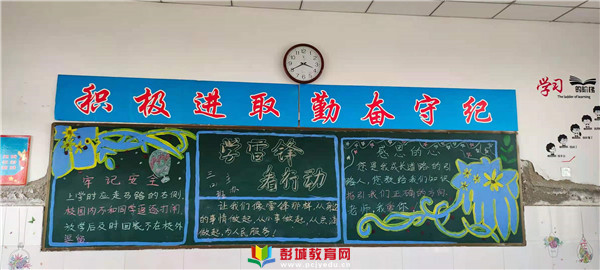 积极进取 勤奋守纪
学习
的阶梯
The ladder of learning
牢记安全
上学时应走马路的右侧,
校园内不和同学追逐打闹,
放学后及时回家不在校外
逗留
学雷锋
者行动
让我们像雷锋那样,从身边
的事情做起,从小事做起,从点滴
做起,为人民服务!
感恩的心
你是我成长道路的引
路人,您教给我们知识
指引我们正确的方向,
老师,我爱你
彭城教育网